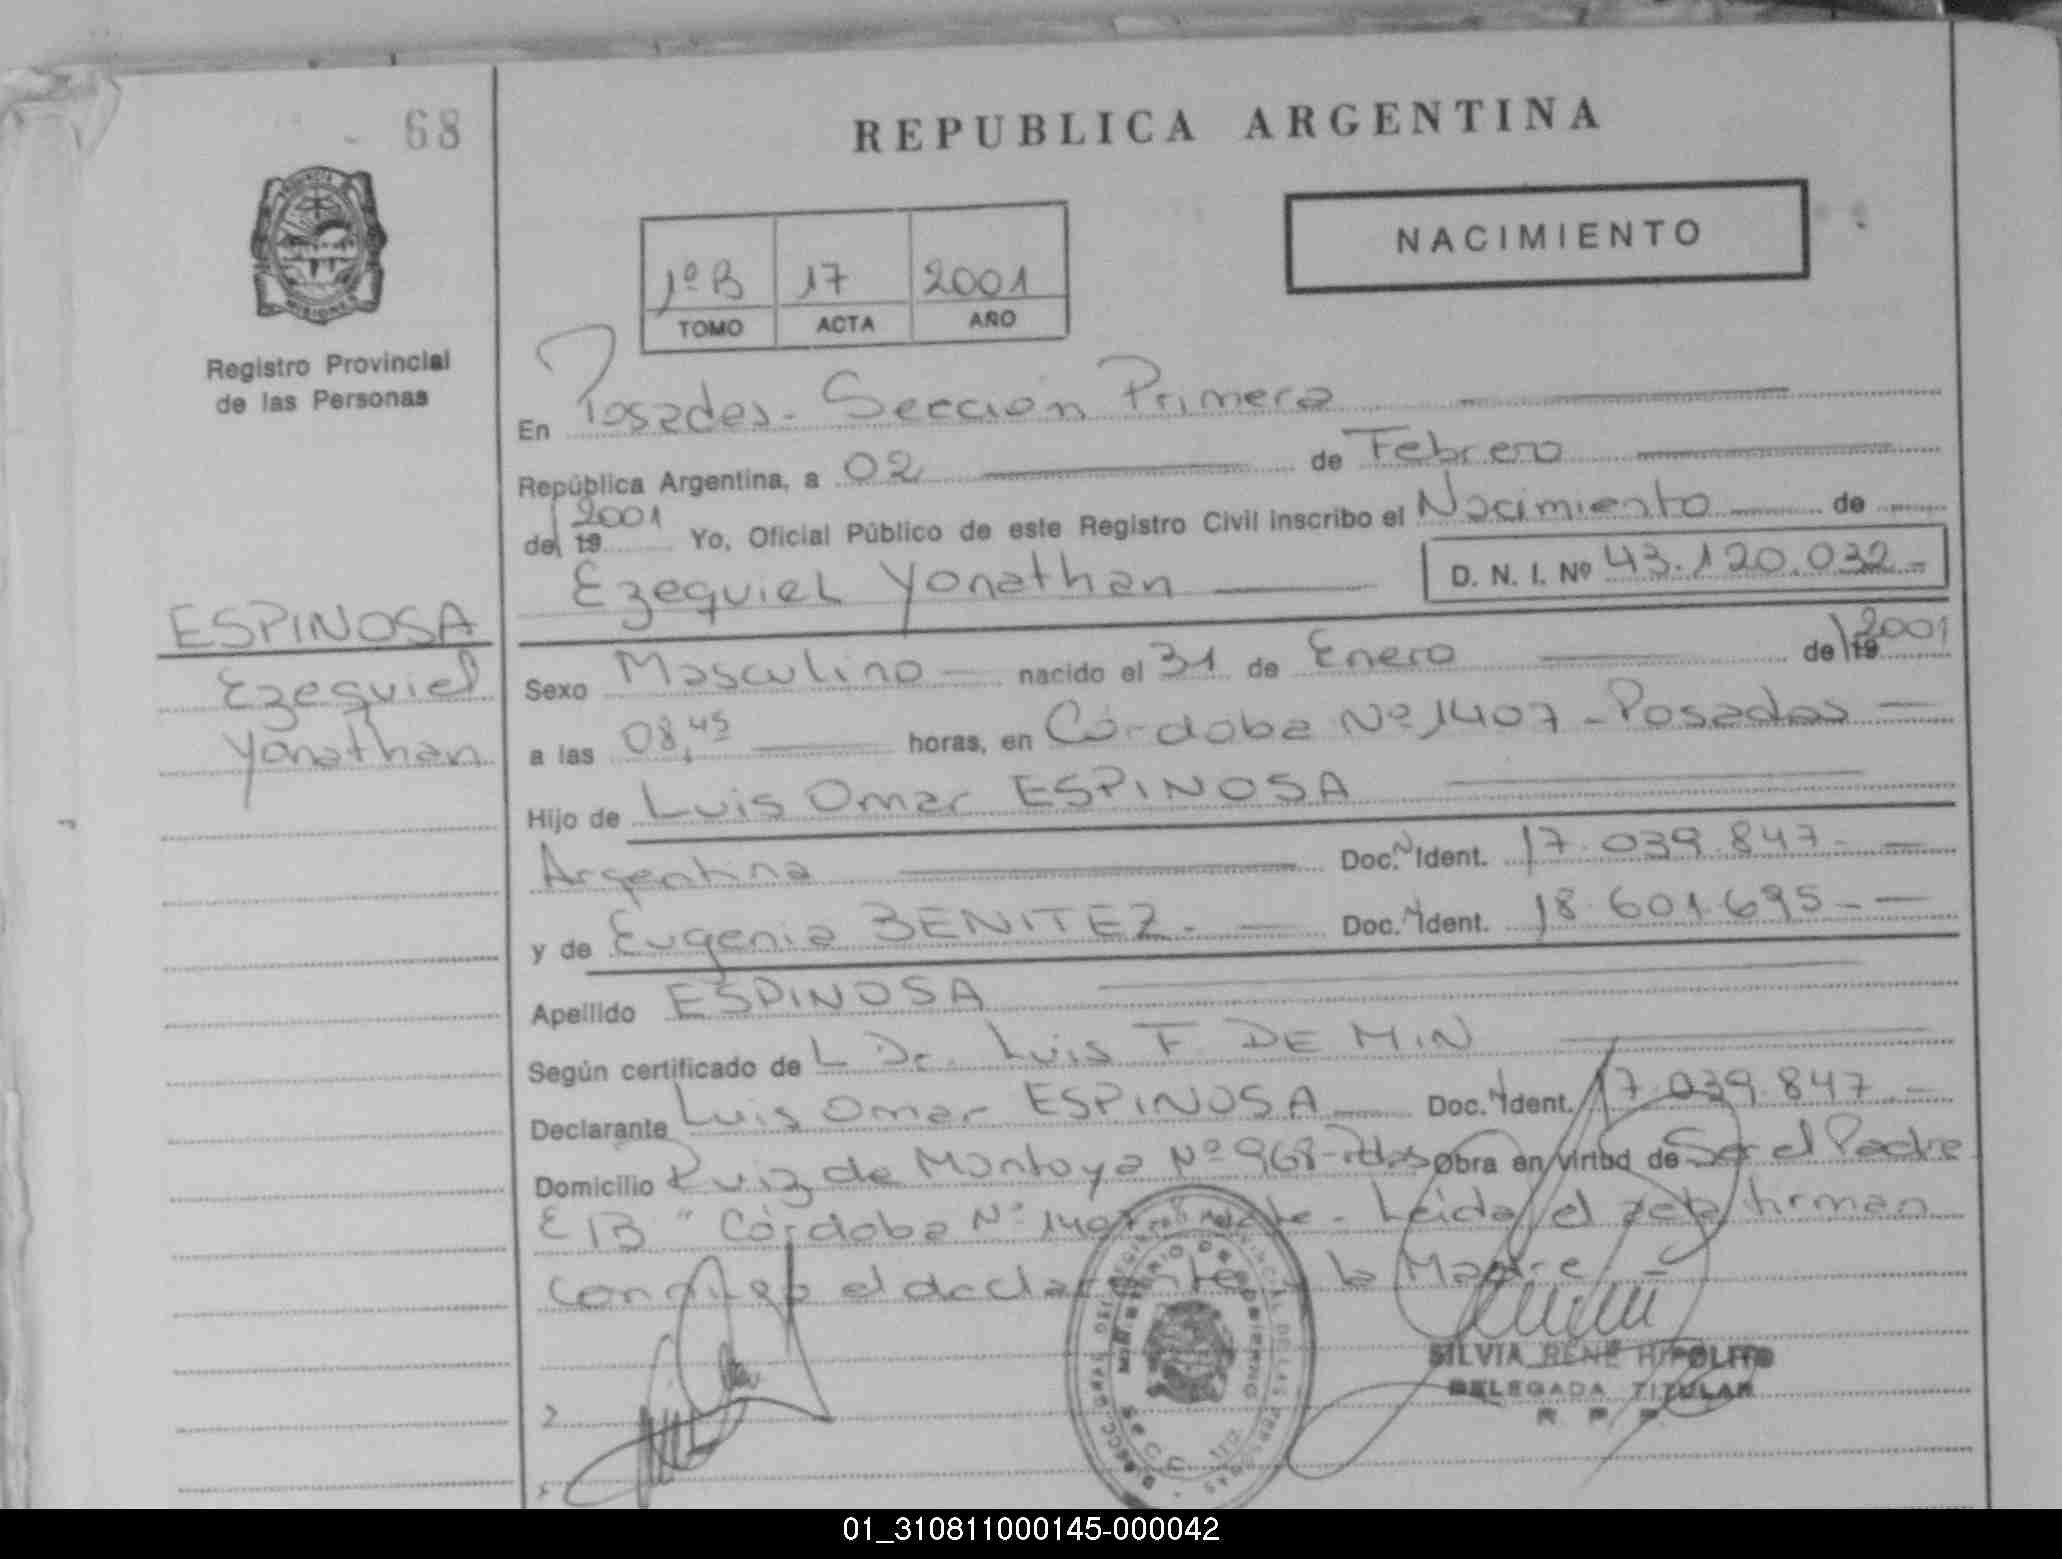 68
REPUBLICA ARGENTINA
NACIMIENTO
1º B 17 2001
TOMO ACTA AÑO
Registro Provincial
de las Personas
En Posadas - Sección Primera
República Argentina, a 02 de Febrero
de 19 2001 Yo, Oficial Público de este Registro Civil inscribo el Nacimiento de
Ezequiel Yonathan D. N. I. Nº 43.120.032-
ESPINOSA
Ezequiel
Yonathan
Sexo Masculino nacido el 31 de Enero de 19 2001
a las 08,45 horas, en Córdoba Nº 1407 - Posadas
Hijo de Luis Omar ESPINOSA
Argentina Doc. Ident. 17.039.847-
y de Eugenia BENITEZ- Doc. Ident. 18.601.695-
Apellido ESPINOSA
Según certificado de L Dr. Luis F. DE MIN
Declarante Luis Omar ESPINOSA Doc. Ident. 17.039.847-
Domicilio Ruiz de Montoya Nº 968-Pdas Obra en virtud de Ser el Padre
Córdoba Nº 1407 Leida el acta firman
conmigo el declarante y la Madre
MINISTERIO DE GOBIERNO
SILVIA RENE HIPOLITO
DELEGADA TITULAR
R. P. P.
01_310811000145-000042